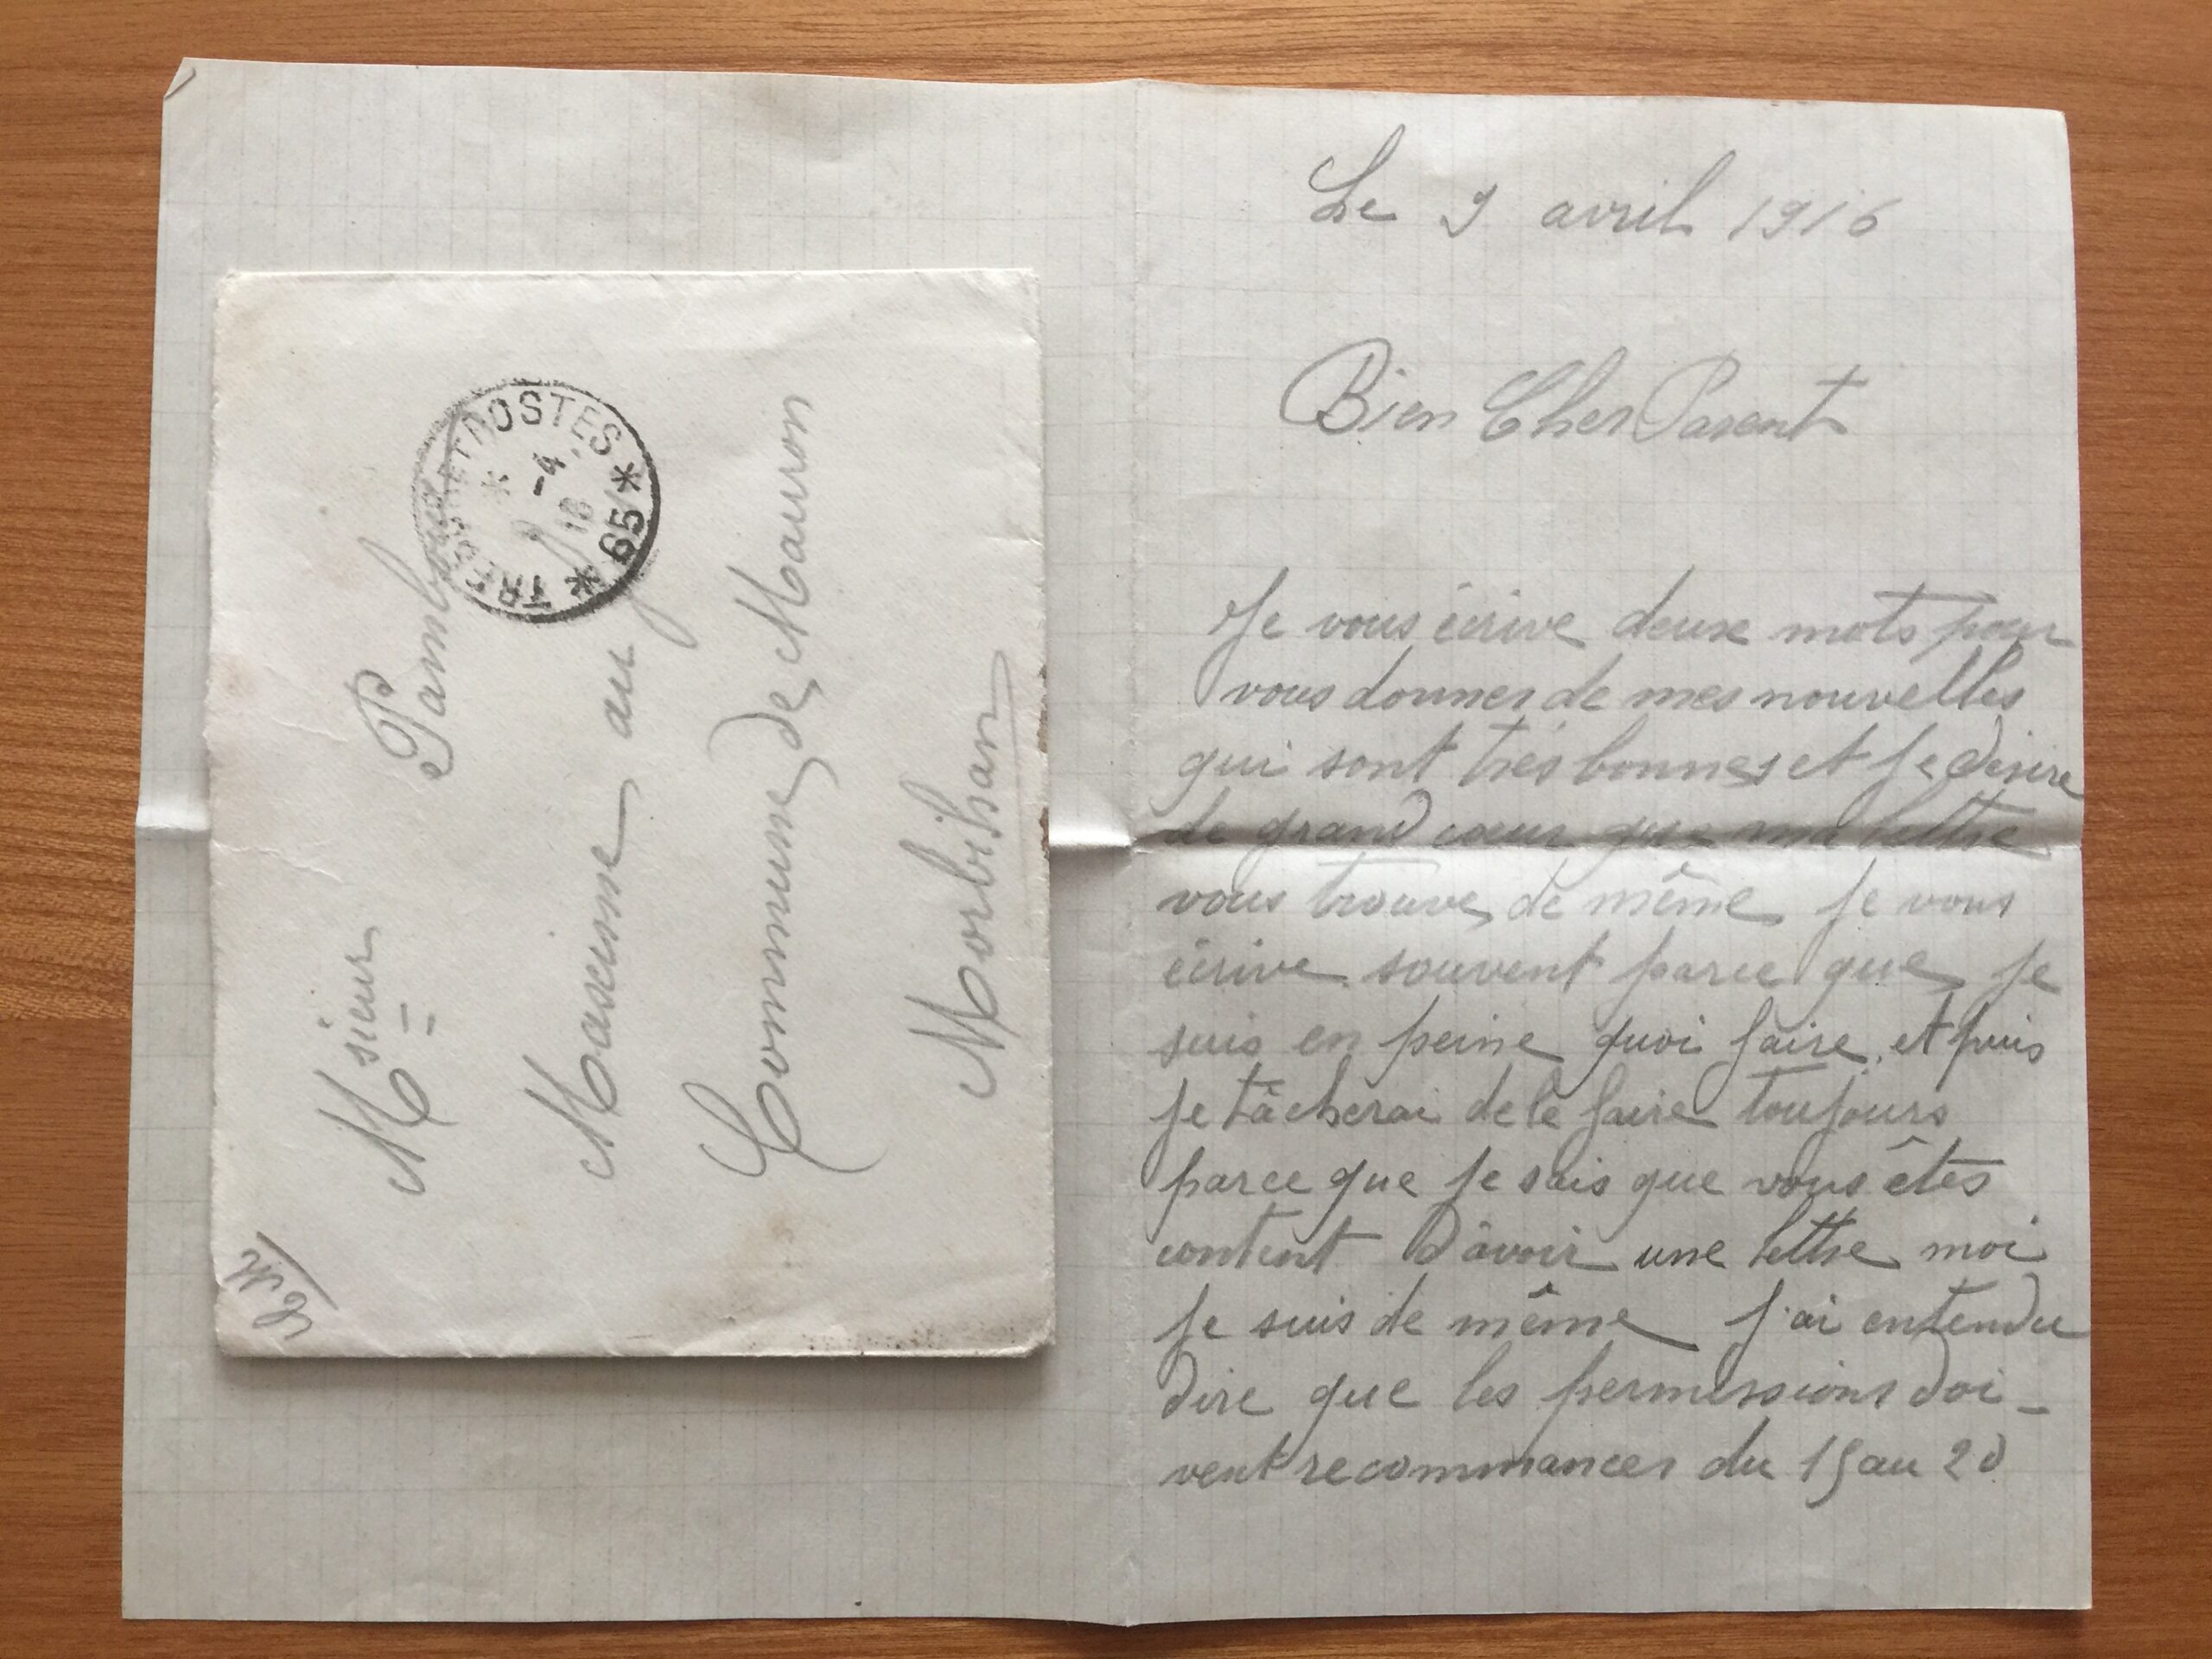 F M
Msieur Pambour
Marcisse au
Commune de Mauron
Morbihan
TRESOR ET POSTES
* -4
16
* 65 *
Le 9 avril 1916
Bien Cher Parent
Je vous écrive deux mots pour
vous donner de mes nouvelles
qui sont très bonnes et je désire
de grand cœur que ma lettre
vous trouve de même je vous
écrive souvent parce que je
suis en peine quoi faire, et puis
je tâcherai de le faire toujours
parce que je sais que vous êtes
content d'avoir une lettre moi
je suis de même j'ai entendu
dire que les permissions doi-
vent recommancer du 15 au 20